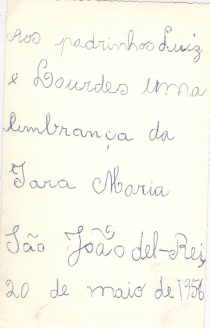 Aos padrinhos Luiz
e Lourdes uma
lembrança da
Iara Maria
São João del-Rei,
20 de maio de 1956